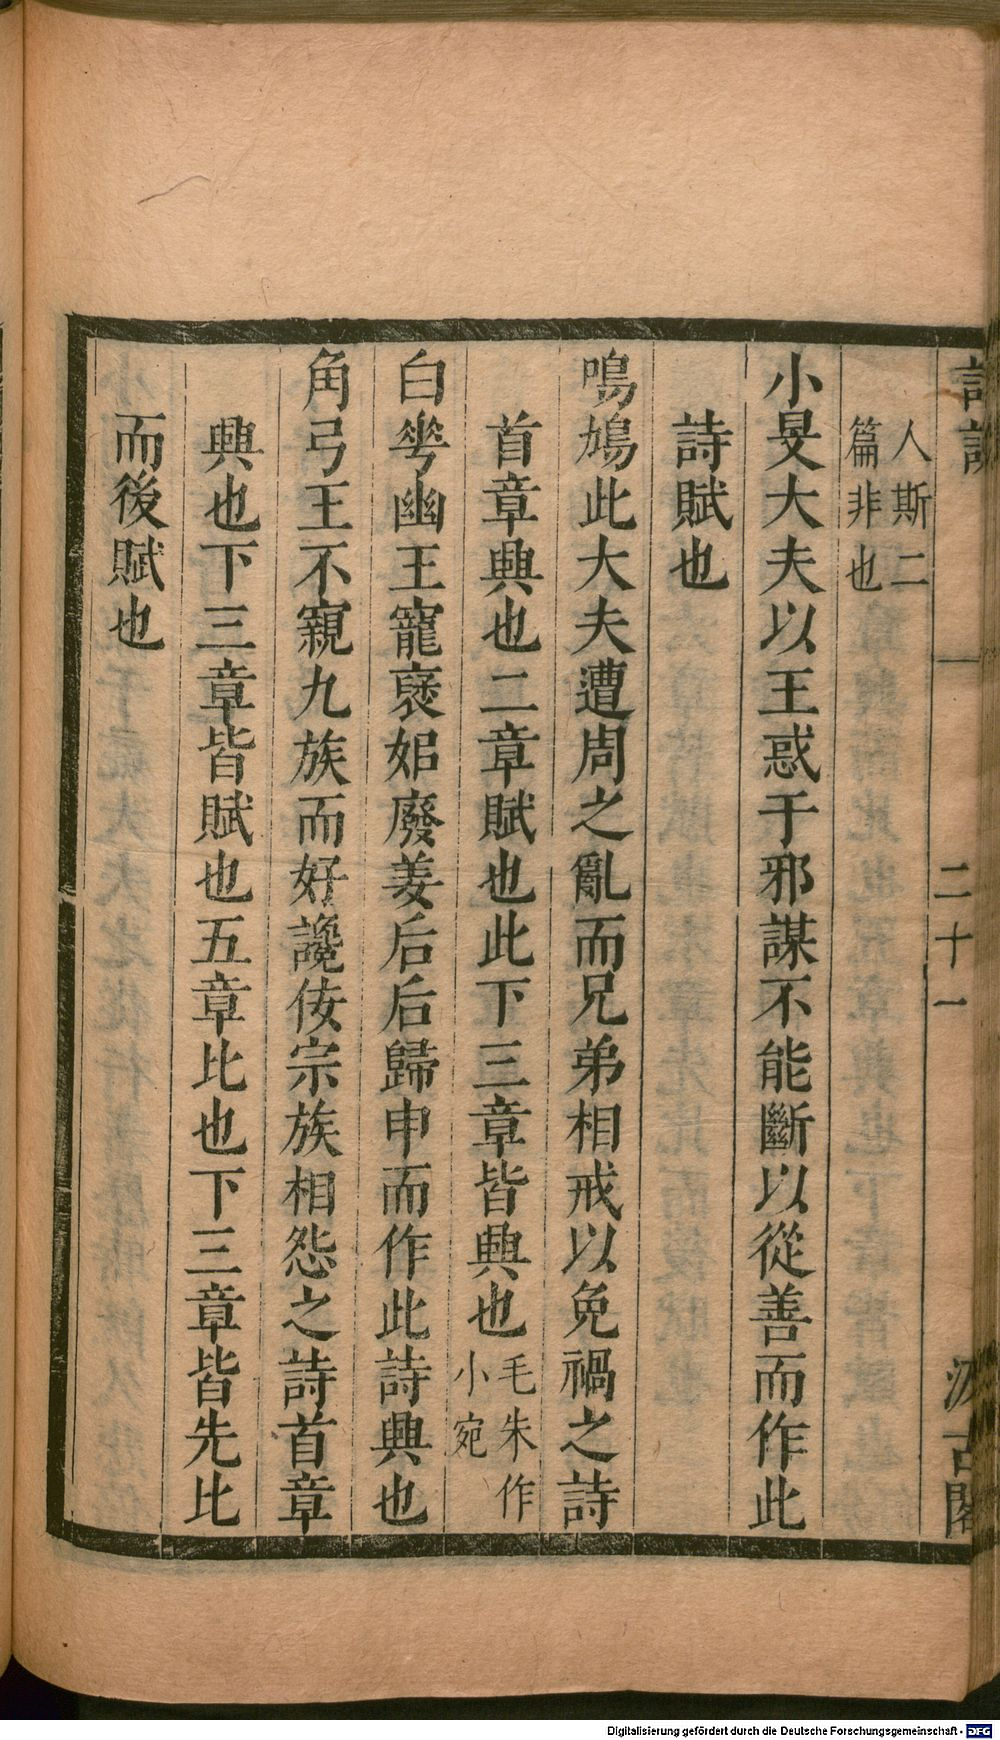 二十一
人斯二
篇非也
小旻大夫以王惑于邪謀不能斷以從善而作此
詩賦也
鳴鳩此大夫遭周之亂而兄弟相戒以免禍之詩
首章興也二章賦也此下三章皆興也毛朱作
小宛
白華幽王寵襃姒廢姜后后歸申而作此詩興也
角弓王不親九族而好讒佞宗族相怨之詩首章
興也下三章皆賦也五章比也下三章皆先比
而後賦也
Digitalisierung gefördert durch die Deutsche Forschungsgemeinschaft - DFG